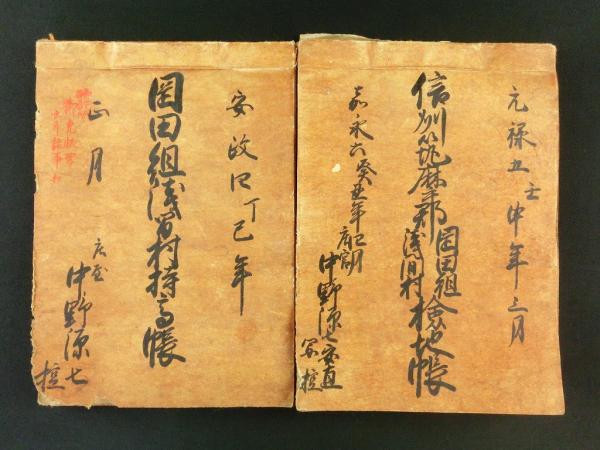 元禄五壬申年三月
信州筑摩郡岡田組浅間村検地帳
嘉永六癸丑年
中野源七
安政四丁巳年
岡田組浅間村持高帳
正月
庄屋
中野源七